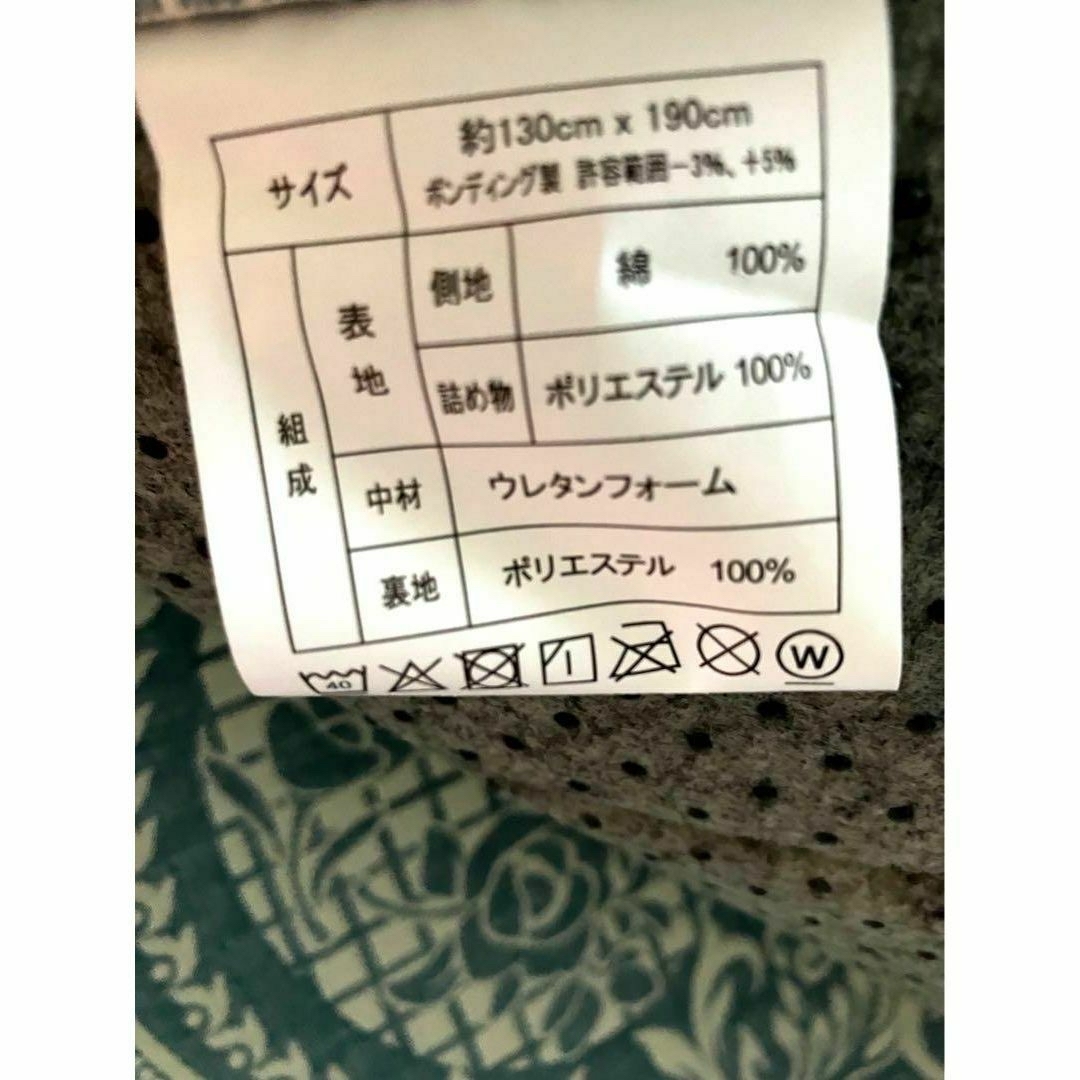 サイズ
約130cm x 190cm
ボンディング製 許容範囲-3%、+5%
組成
表地
側地 綿 100%
詰め物 ポリエステル 100%
中材 ウレタンフォーム
裏地 ポリエステル 100%
40
W